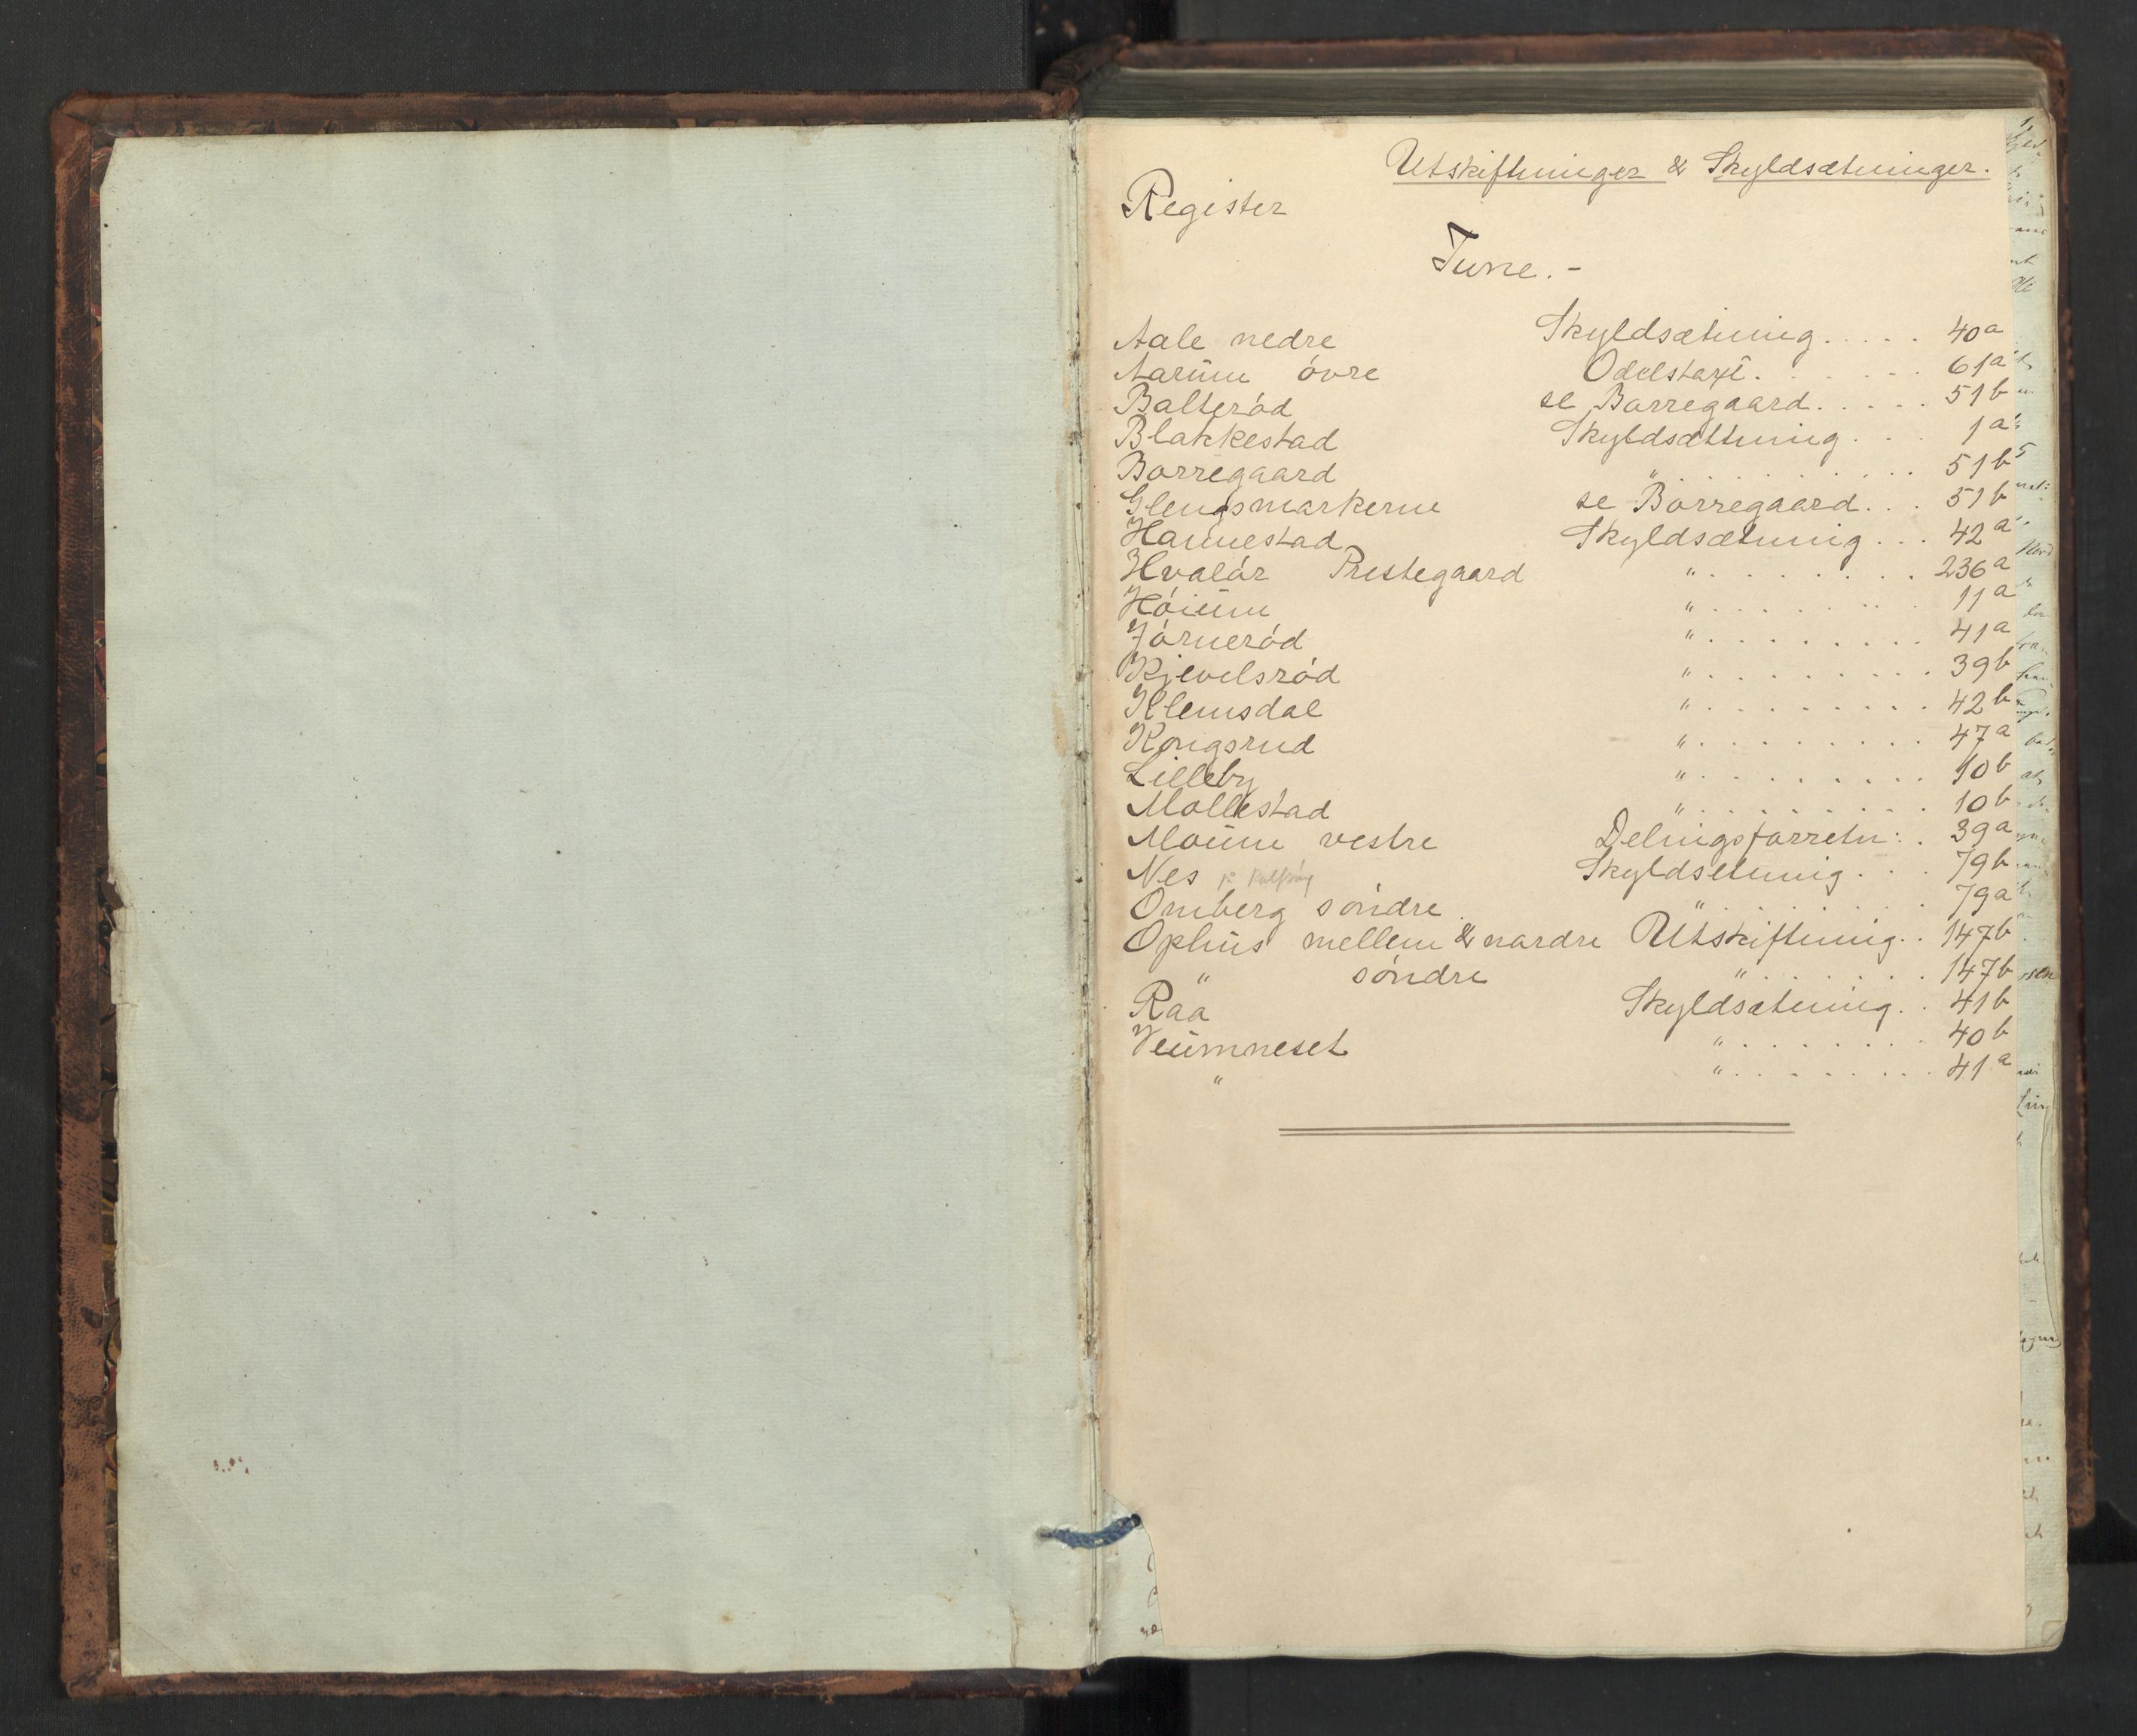 Utskiftninger & Skyldsætninger.
Register
Tune.-
Aale nedre Skyldsætning..... 40a
Aarum óvre Odelstaxt....... 61a
Balteród se Borregaard..... 51b
Blakkestad Skyldsættning... 1a
Borregaard "........ 51b
Glengsmarkerne se Borregaard... 51b
Hannestad Skyldsætning... 42a
Hvalór Prestegaard "........ 236a
Hóium "........ 11a
Jórneród "........ 41a
Kjevelsród "......... 39b
Klemsdal "......... 42b
Kongsrud "......... 47a
Lilleby "......... 10b
Mollestad "......... 10b
Moum vestre Delingsforretn:. 39a
Nes Skyldsetning... 79b
Omberg sóndre "........ 79a
Ophus mellem & nordre Utskiftning.. 147b
" sóndre "....... 147b
Raa Skyldsætning.. 41b
Veumneset "........ 40b
" "........ 41a